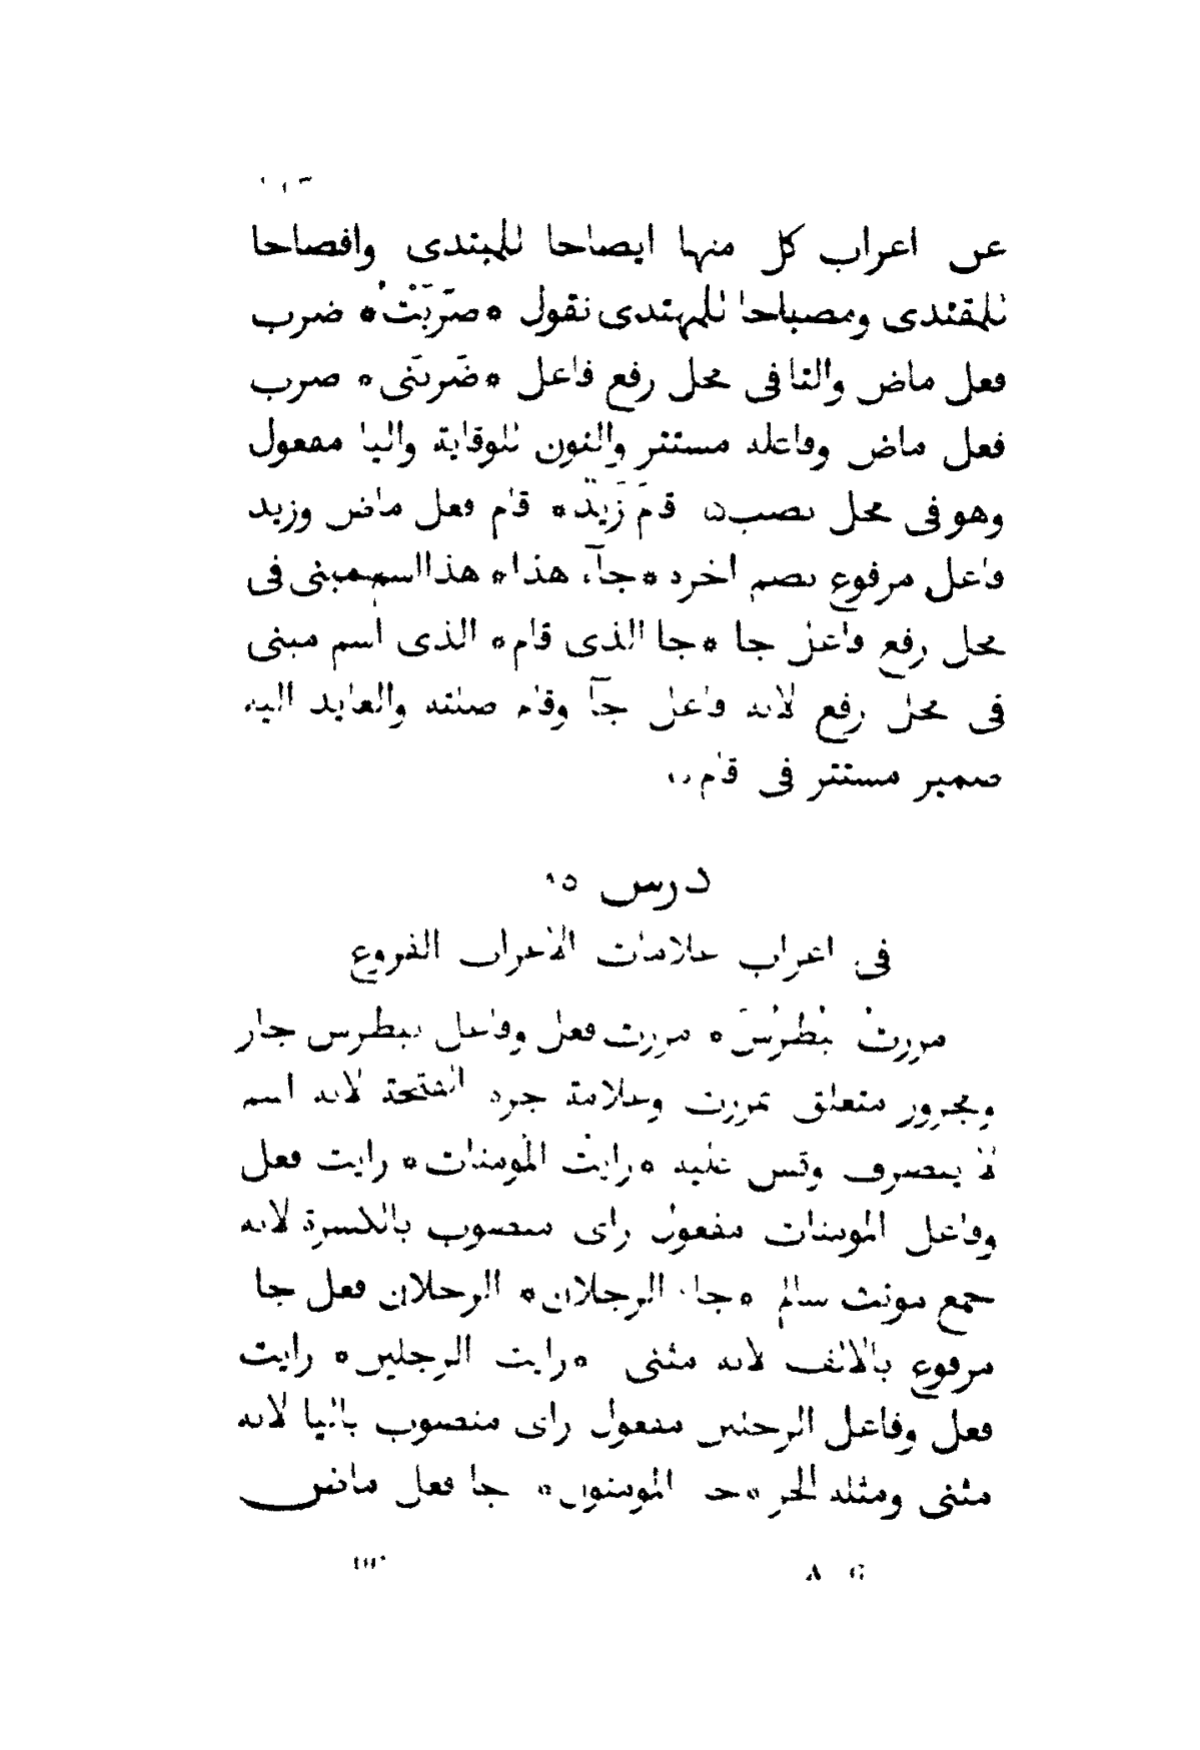 عن اعراب كل منها ايضاحا للمبتدى وافصاحا
للمقتدى ومصباحا للمهتدى نقول * ضَرَبْتُ * ضرب
فعل ماض والتا فى محل رفع فاعل * ضَربَنى * ضرب
فعل ماض وفاعله مستتر والنون للوقاية واليا مفعول
وهو فى محل نصب * قامَ زَيدٌ * قام فعل ماض وزيد
فاعل مرفوع بضم اخره * جآء هذا * هذا اسم مبنى فى
محل رفع فاعل جا * جا الذى قام * الذى اسم مبنى
فى محل رفع لانه فاعل جآ وقام صلته والعايد اليه
ضمير مستتر فى قام
درس ١٥
فى اعراب علامات الاعراب الفروع
مررتُ ببُطرُسَ * مررت فعل وفاعل ببطرس جار
ومجرور متعلق بمررت وعلامة جره الفتحة لانه اسم
لا ينصرف وقس عليه * رايتُ المُومنات * رايت فعل
وفاعل المومنات مفعول راى منصوب بالكسرة لانه
جمع مونث سالم * جاء الرجلان * الرجلان فعل جا
مرفوع بالالف لانه مثنى * رايت الرجلين * رايت
فعل وفاعل الرجلين مفعول راى منصوب باليا لانه
مثنى ومثله الجر * المومنون * جا فعل ماض
A G